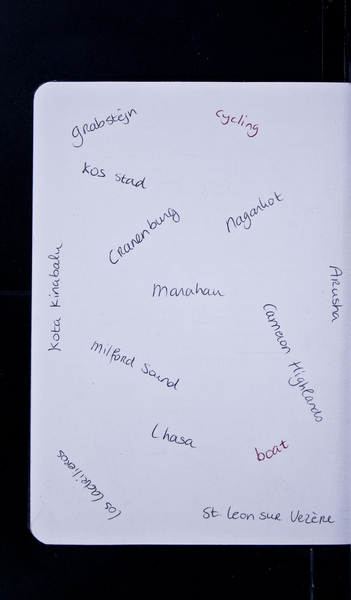 grabstejn
cycling
kos stad
Cranenburg
nagarkot
Kota Kinabalu
Marahau
Arusha
Cameron Highlands
Milford Sound
Lhasa
boat
los ladrilleros
St. Leon sur Vezère